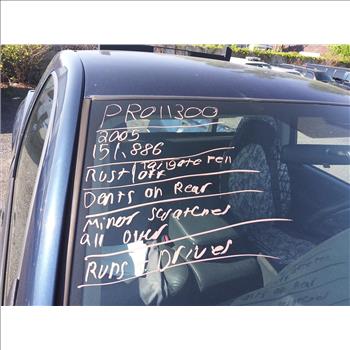 PRO11300
2005
151,886
Rust/Tailgate fell off
Dents on Rear
Minor scratches
all over
Runs & Drives